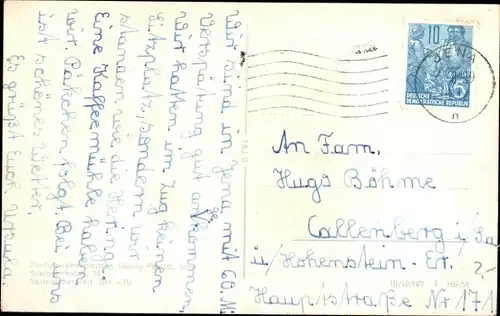 Wir sind in Jena mit 60 Mi.
Verspätung gut angekommen,
Wir hatten im Zug keinen
Sitzplatz, sondern wir
standen wie die Heringe.
Eine Kaffeemühle habe
wir. Päckchen folgt. Bei uns
ist schönes Wetter.
Es grüßt Euch Ursula.
10
DEUTSCHE
DEMOKRATISCHE REPUBLIK
JENA
n
An Fam.
Hugo Böhme
Callenberg i/Sa
Hohenstein - Er.
Hauptstraße Nr 171
III/10/197